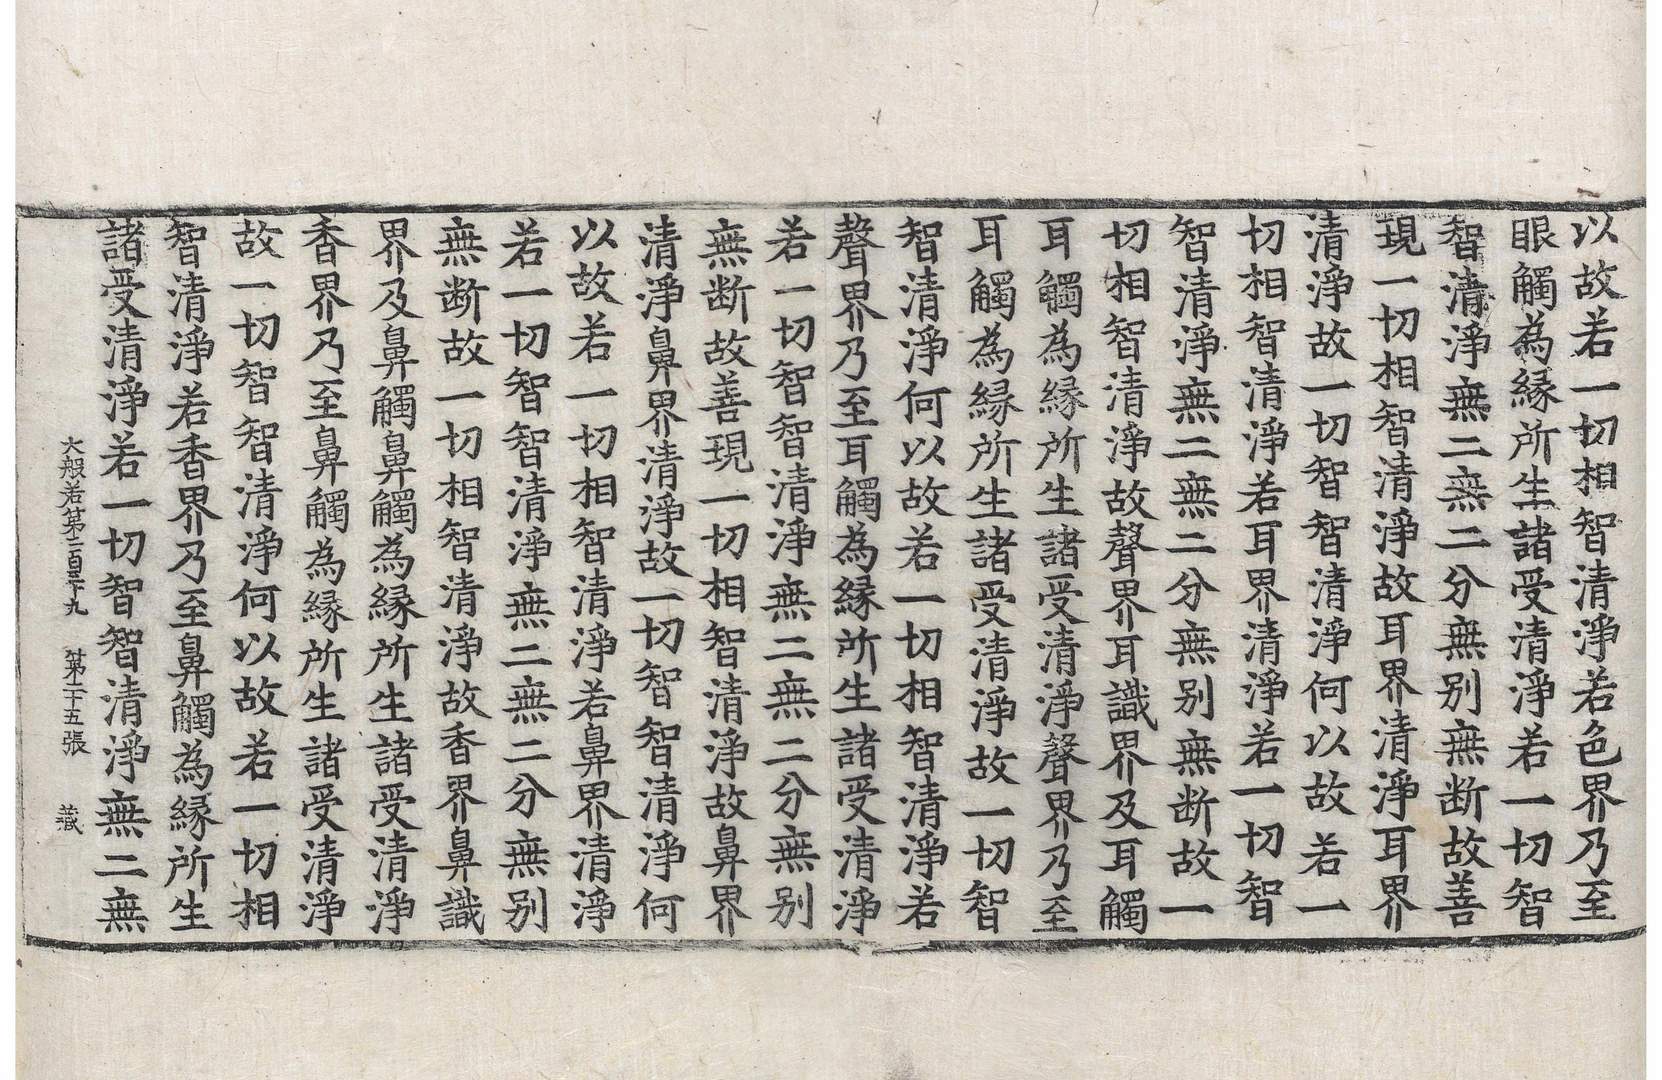 以故若一切相智清淨若色界乃至
眼觸為縁所生諸受清淨若一切智
智清淨無二無二分無别無断故善
現一切相智清淨故耳界清淨耳界
清淨故一切智智清淨何以故若一
切相智清淨若耳界清淨若一切智
智清淨無二無二分無别無断故一
切相智清淨故聲界耳識界及耳觸
耳觸為縁所生諸受清淨聲界乃至
耳觸為縁所生諸受清淨故一切智
智清淨何以故若一切相智清淨若
聲界乃至耳觸為縁所生諸受清淨
若一切智智清淨無二無二分無别
無断故善現一切相智清淨故鼻界
清淨鼻界清淨故一切智智清淨何
以故若一切相智清淨若鼻界清淨
若一切智智清淨無二無二分無别
無断故一切相智清淨故香界鼻識
界及鼻觸鼻觸為縁所生諸受清淨
香界乃至鼻觸為縁所生諸受清淨
故一切智智清淨何以故若一切相
智清淨若香界乃至鼻觸為縁所生
諸受清淨若一切智智清淨無二無
大般若第二百三十九 第二十五張 藏